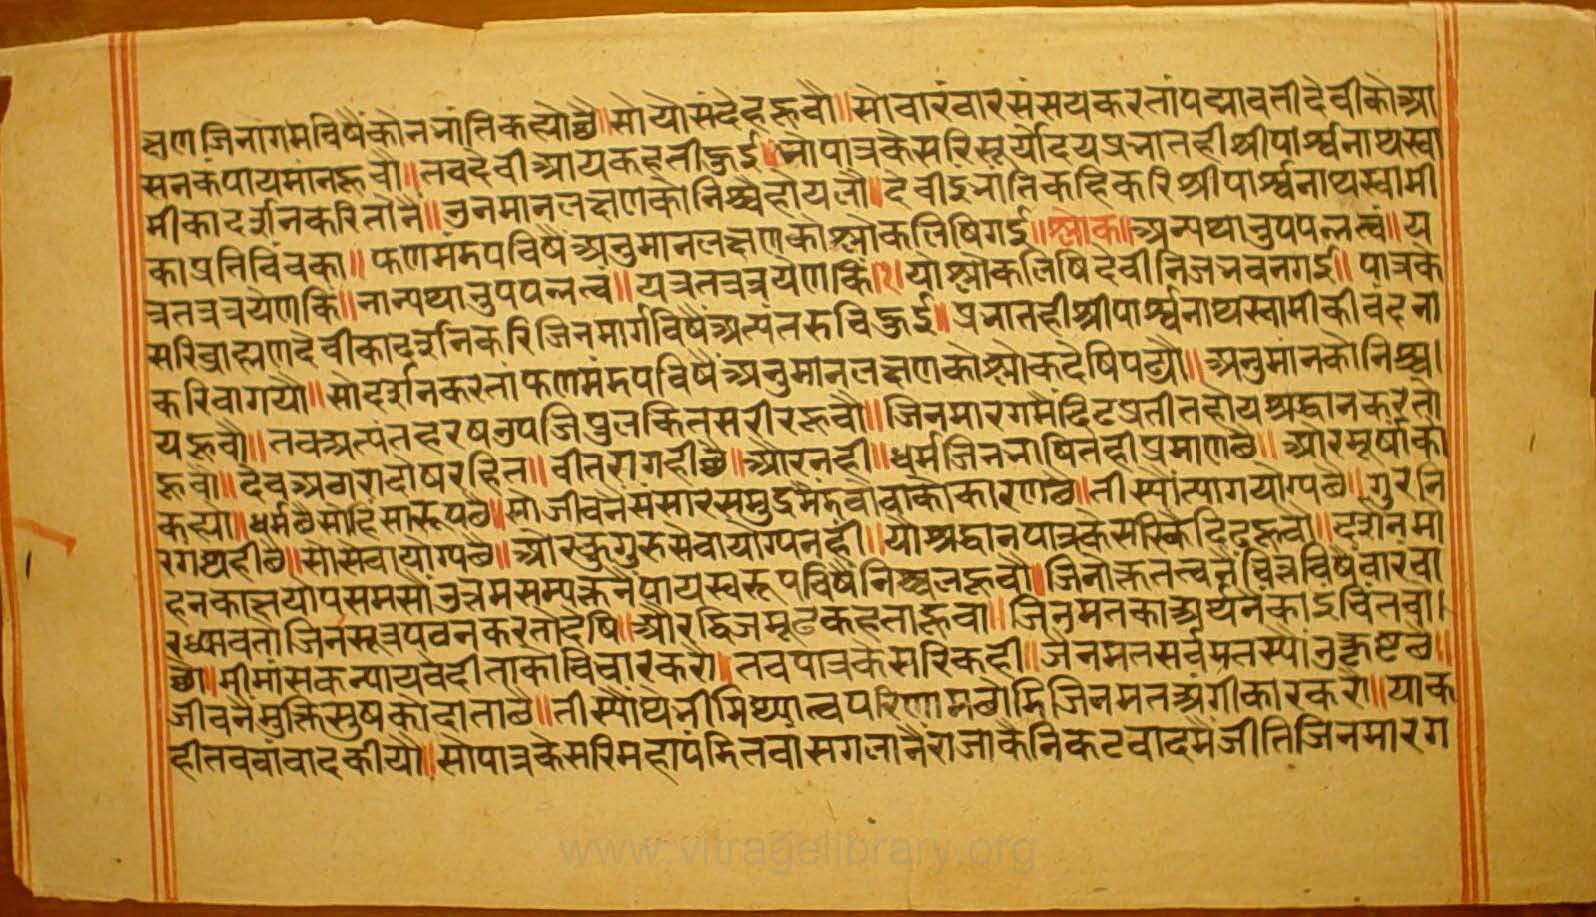 क्षणजिनागमविषैंकोनभांतिकह्योछै॥सोयोसंदेहहूवौ॥सोवारंवारसंसयकरतांपद्मावतीदेवीकोआ
सनकंपायमांनहूवो॥तवदेवीआयकहतीहुई॥भोपात्रकेसरिसूर्योदयप्रभातहीश्रीपार्श्वनाथस्वा
मीकादर्शनकरितोनै॥अनुमानलक्षणकोनिश्चैहोयलौ॥देवीइभांतिकहिकरिश्रीपार्श्वनाथस्वामी
काप्रतिविंवका॥फणमंडपविषैंअनुमानलक्षणकोश्लोकलिषिगई॥श्लोक॥अन्यथानुपपन्नत्वं॥य
त्रतत्रत्रयेणकिं॥नान्यथानुपपन्नत्वं॥यत्रतत्रत्रयेणकिं।१।योश्लोकलिषिदेवीनिजभवनगई॥पात्रके
सरिव्राह्मणदेवीकादर्शनकरिजिनमार्गविषैंअत्यंतरुचिहुई॥प्रभातहीश्रीपार्श्वनाथस्वामीकीवंदना
करिवागयो॥सोदर्शनकरतांफणमंडपविषैंअनुमानलक्षणकोश्लोकदेषिपढ्यो॥अनुमांनकोनिश्च।
यहूवौ॥तवअत्यंतहरषउपजिपुलकितसरीरहूवौ॥जिनमारगमैंदिढप्रतीतहोयश्रद्धानकरतो
हूवौ॥देवअठारादोषरहित॥वीतरागहीछै॥औरनही॥धर्मजिनभाषितहीप्रमाणछै॥औरमूर्षाको
कह्यो॥धर्मछैसोहिंसारूपछै॥सोजीवनैसंसारसमुद्रमैंडवोवाकोकारणछै॥तीस्यौंत्यागयोग्यछै॥गुरनि
रग्रथहीछै॥सोसेवायोग्यछै॥औरकुगुरुसेवायोग्यनहीं॥योश्रद्धानपात्रकेसरिकैदिढहूवो॥दर्शनमो
हनकाक्षयोपसमसौंउत्तमसम्यक्तनैपायस्वरूपविषैंनिश्चलहूवो॥जिनोक्ततत्वनैंचित्तविषैंवारंवा
रध्यावतोजिनसूत्रपठनकरतोदेषि॥औरद्विजमूढकहताहूवा॥जिनमतकाअर्थनैंकाइचिंतवो।
छो॥मीमांसकन्यायवेदीताकोविचारकरो॥तवपात्रकेसरिकही॥जैनमतसर्वमतस्यौंउत्कृष्टछै॥
जीवनैमुक्तिसुषकोदाताछै॥तीस्यौंथेभीमिथ्यात्वपरिणामछोडिजिनमतअंगीकारकरो॥याक
हीतववांवादकीयो॥सोपात्रकेसरिमहापंडितवांसगलांनैंराजाकैनिकटवादमैंजीतिजिनमारग
www.vitragelibrary.org